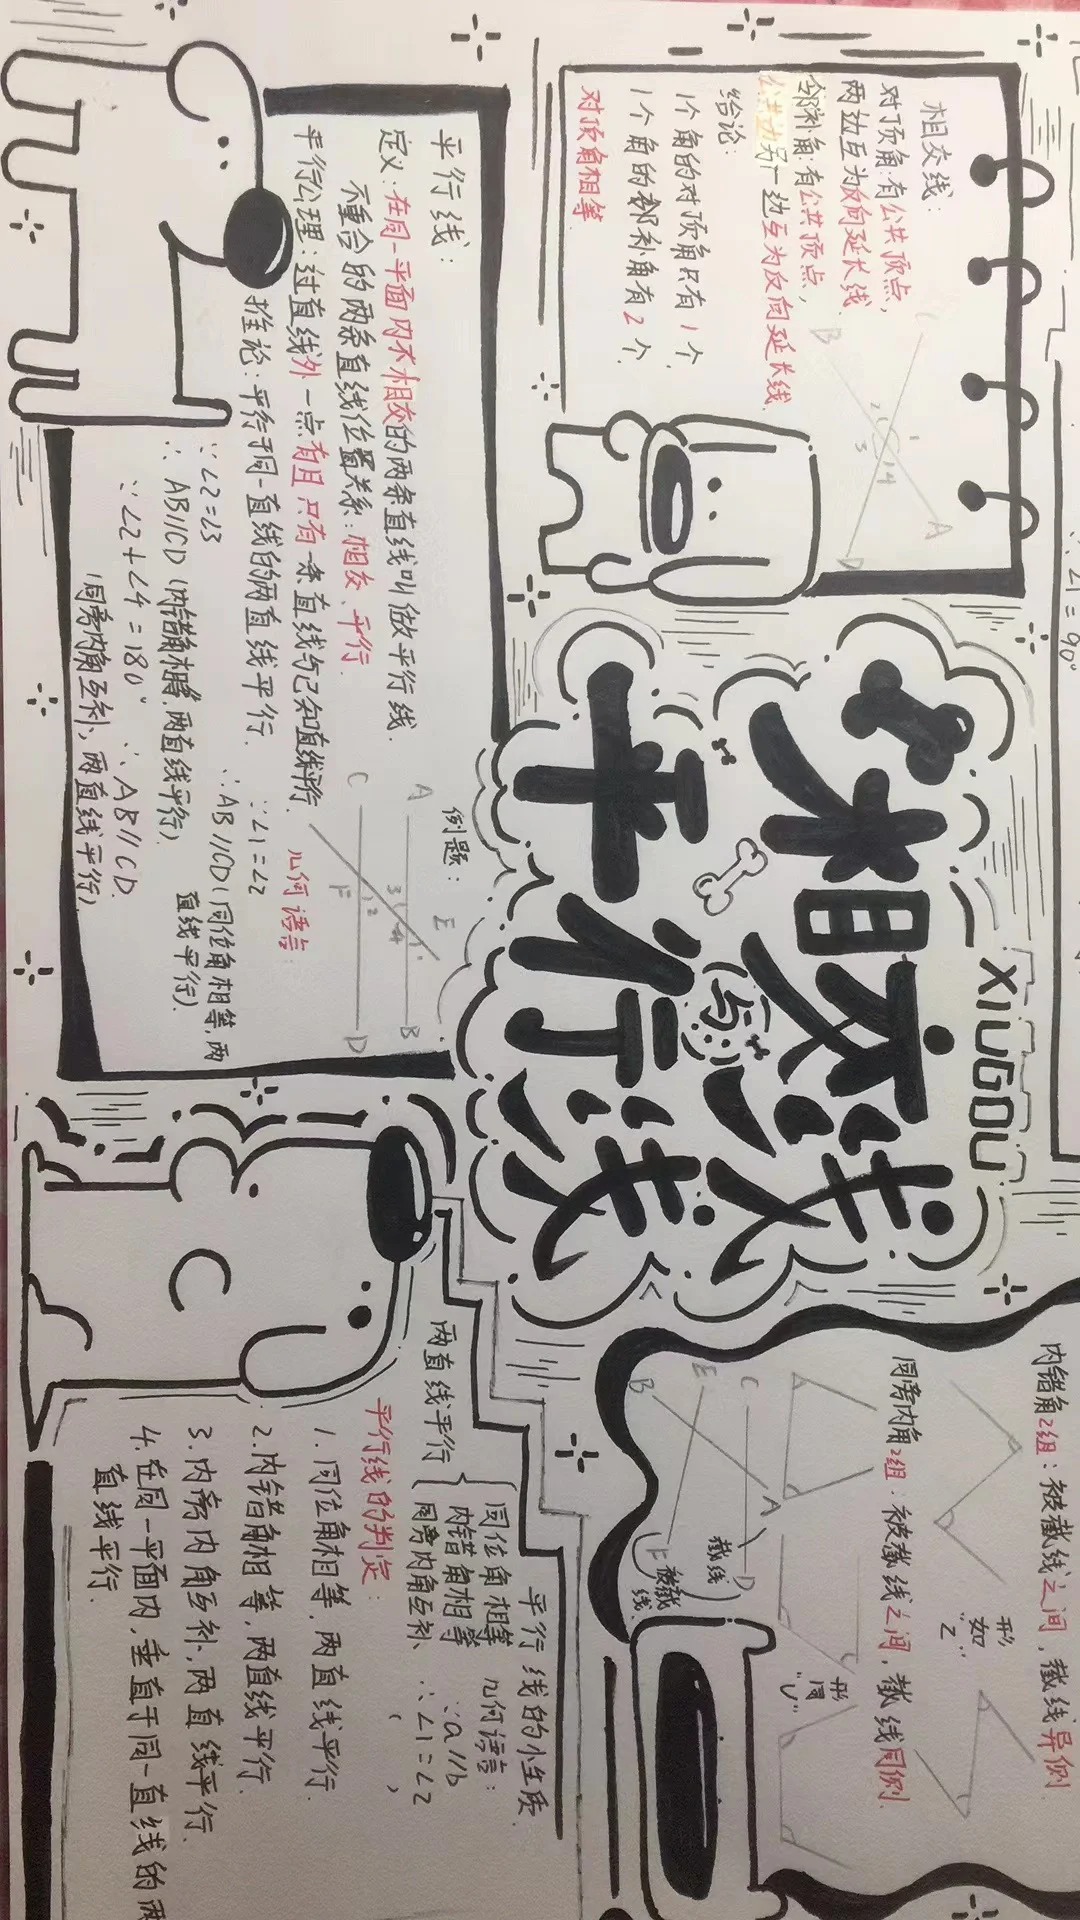 相交线与
平行线
XIUGOU
相交线：
对顶角：有公共顶点，
两边互为反向延长线
邻补角：有公共顶点，
公共边另一边互为反向延长线.
给论：
1个角的对顶角只有1个.
1个角的邻补角有2个.
对顶角相等
B
A
D
1
2
3
4
∠1=90°
平行线：
定义：在同一平面内不相交的两条直线叫做平行线.
不重合的两条直线位置关系：相交、平行.
平行公理：过直线外一点有且只有一条直线与已知直线平行.
推论：平行于同一直线的两直线平行.
例题：
A
B
C
D
E
F
1
2
3
4
几何语言：
∵∠1=∠2
∴AB//CD（同位角相等，两
直线平行）.
∵∠2=∠3
∴AB//CD（内错角相等，两直线平行）.
∵∠2+∠4=180° ∴AB//CD.
（同旁内角互补，两直线平行）.
内错角2组：被截线之间，截线异侧
形
如
"Z"
同旁内角2组：被截线之间，截线同侧.
形
同
"U"
C
E
B
A
D
F
截线
被截
线
平行线的小性质.
两直线平行
同位角相等
内错角相等
同旁内角互补.
几何语言：
∵a//b
∴∠1=∠2
（ ，
平行线的判定：
1.同位角相等，两直线平行.
2.内错角相等，两直线平行.
3.内旁内角互补，两直线平行.
4.在同一平面内，垂直于同一直线的两
直线平行.